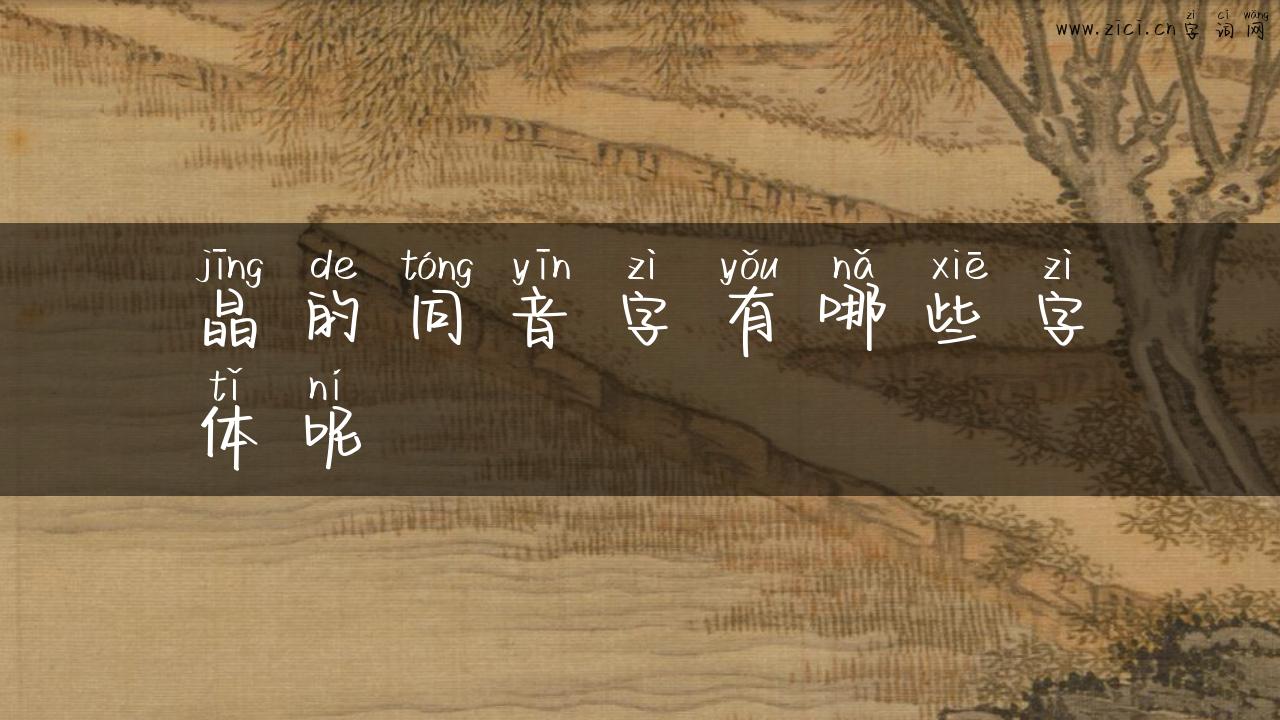 zì cí wǎng
www.zici.cn字词网
jīng de tóng yīn zì yǒu nǎ xiē zì
晶的同音字有哪些字
tǐ ní
体呢